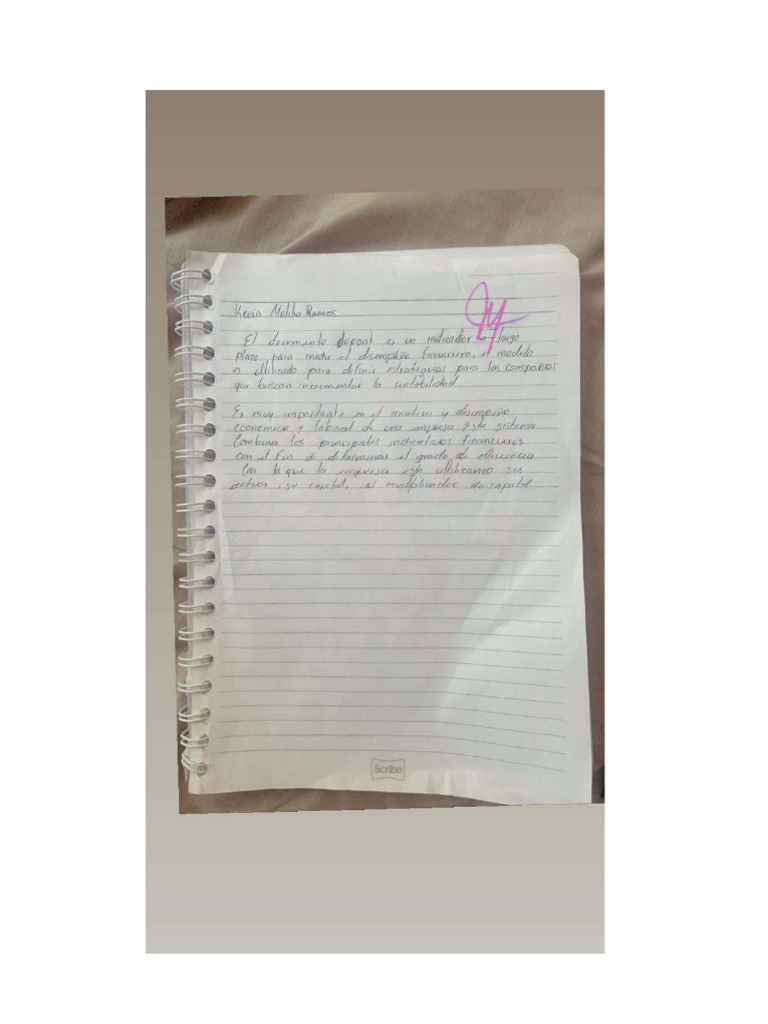 Kevin Molina Ramos
El documento dupont es un indicador a largo
plazo para medir el desempeño financiero, el modelo
es utilizado para definir estrategias para las compañias
que buscan incrementar la rentabilidad
Es muy importante en el analisis y desempeño
economico y laboral de una empresa Este sistema
Combina los principales indicadores financieros
con el fin de determinar el grado de eficiencia
Con la que la empresa esta utilizando sus
activos, su capital, el multiplicador de capital
Scribe